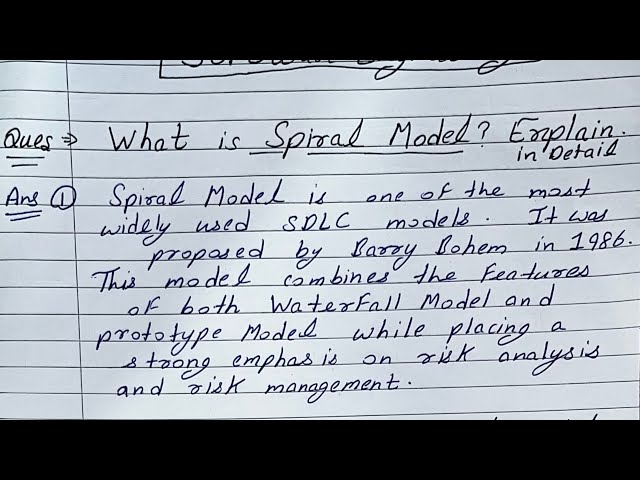 Ques ⇒ What is Spiral Model? Explain.
in Detail
Ans ① Spiral Model is one of the most
widely used SDLC models. It was
proposed by Barry Bohem in 1986.
This model combines the Features
of both WaterFall Model and
prototype Model while placing a
strong emphasis on risk analysis
and risk management.